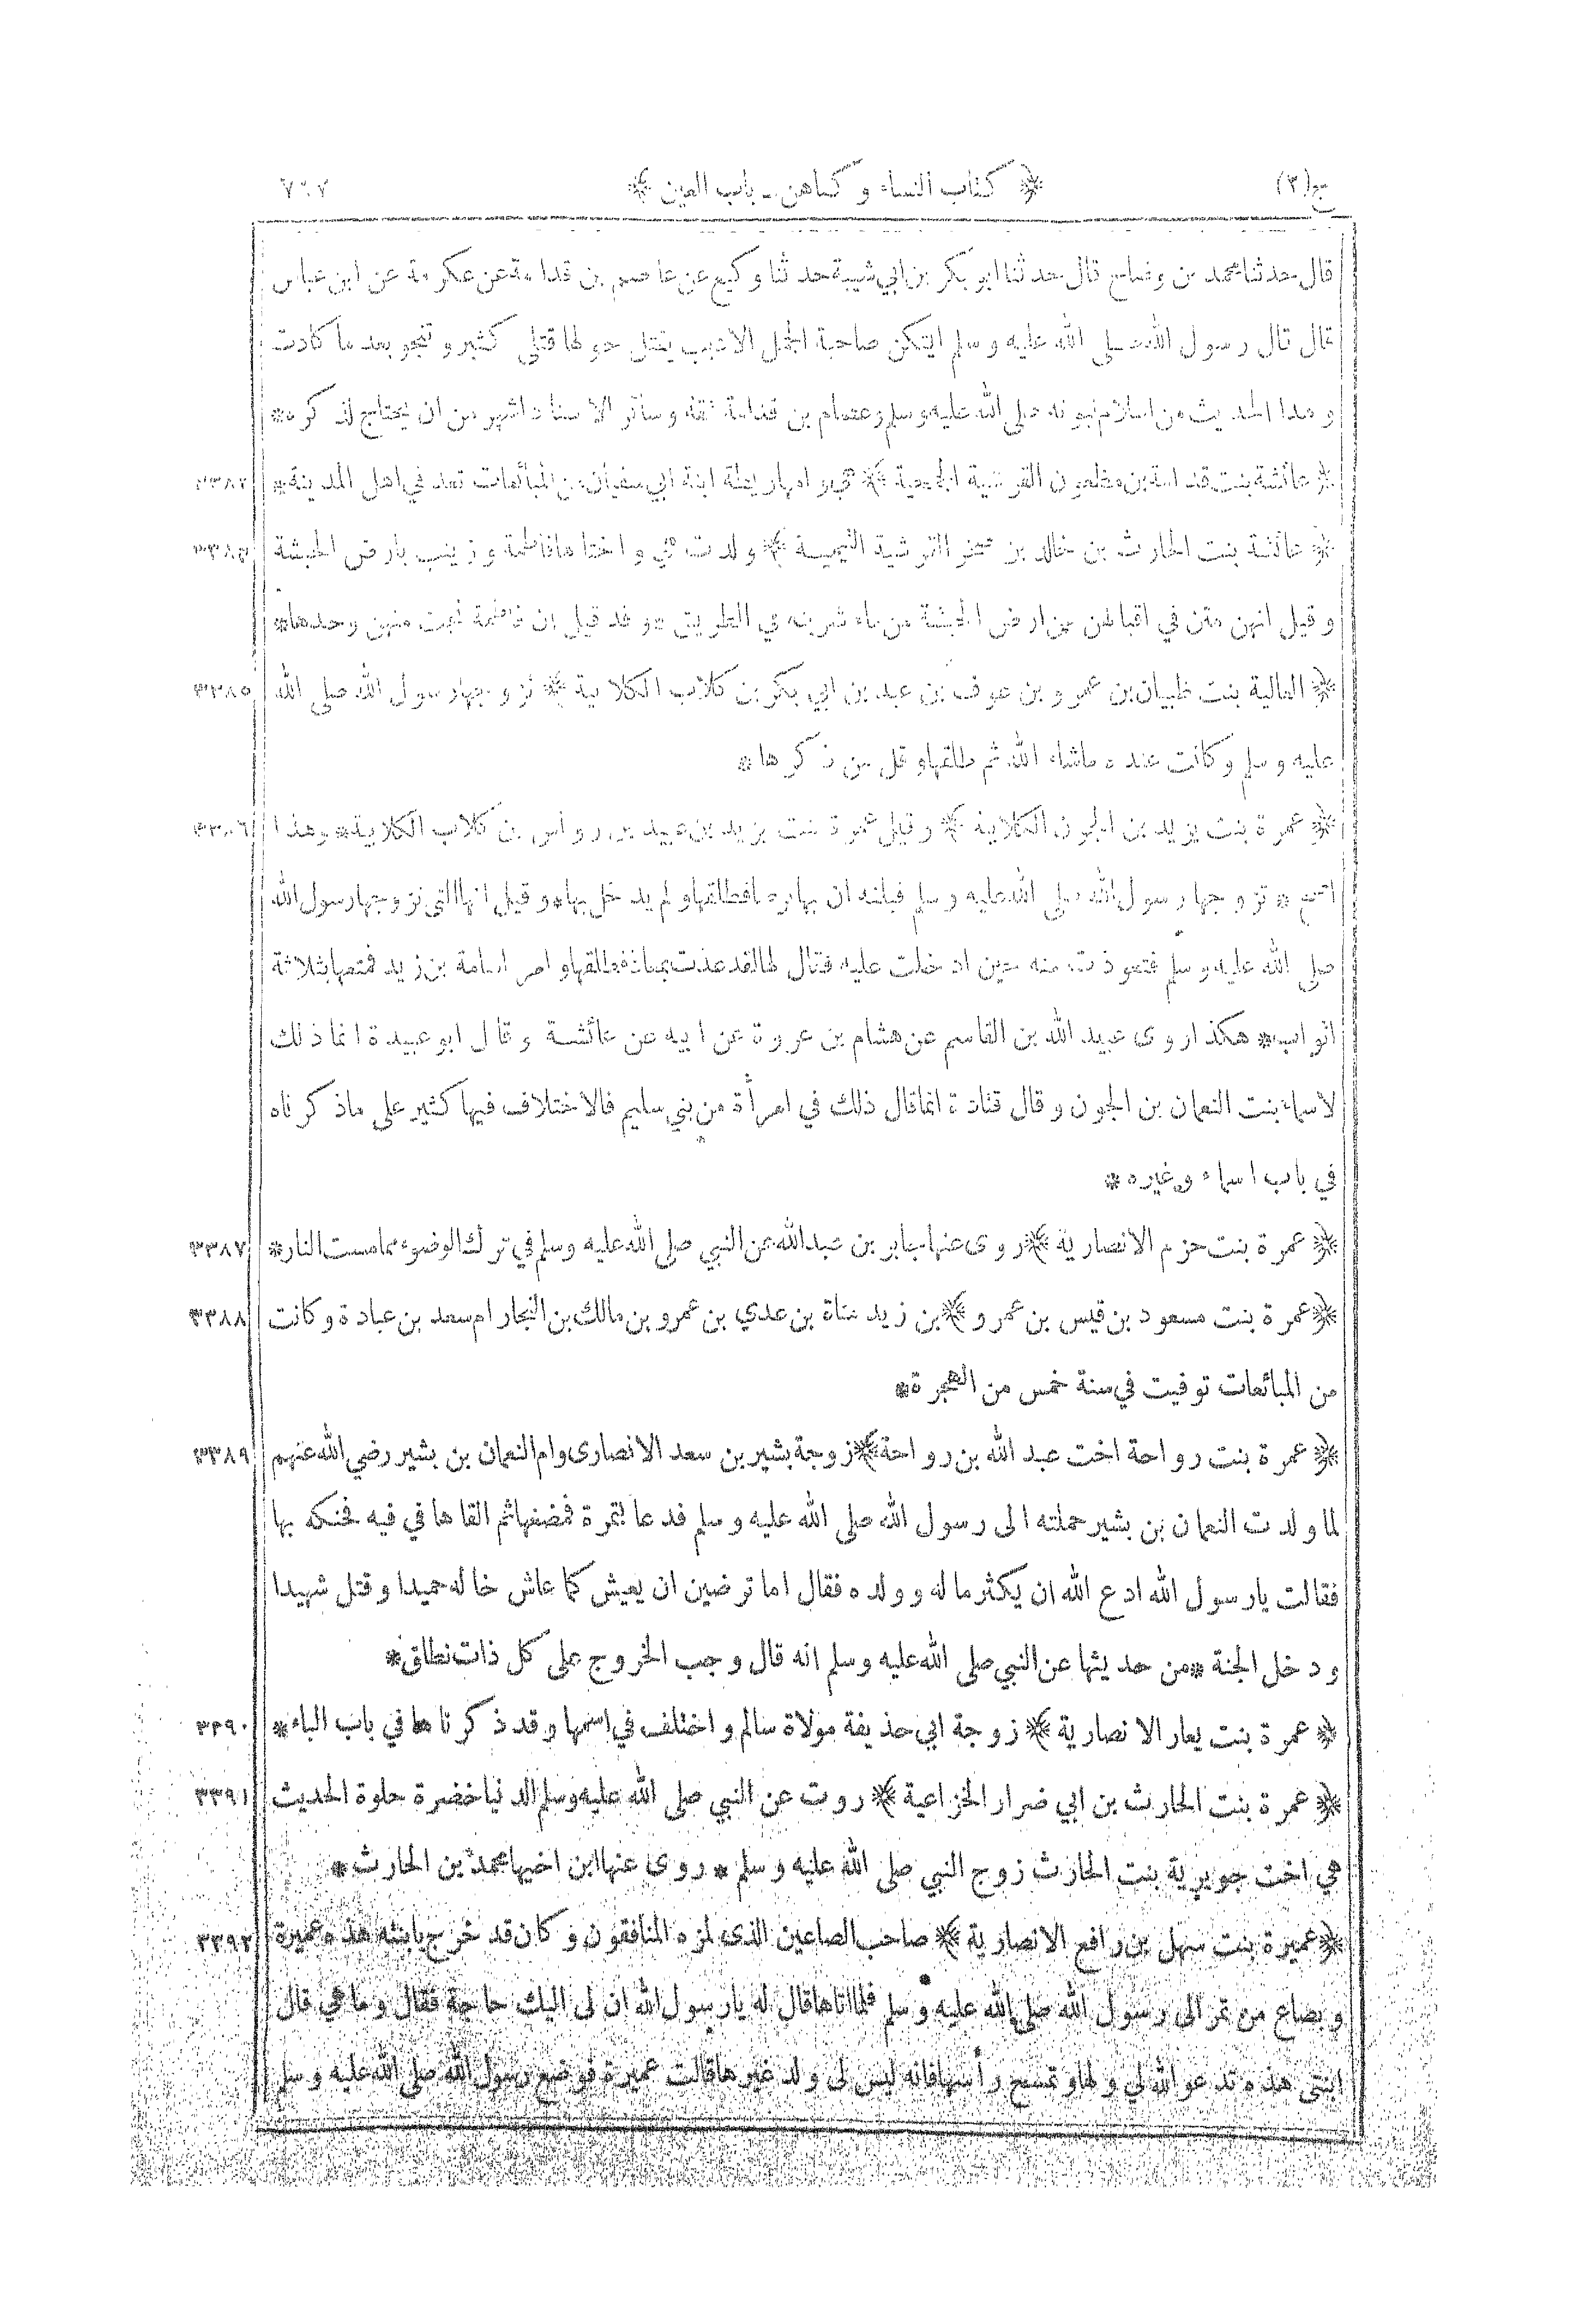 ج(٢) ﴿ كتاب النساء و كناهن ـ باب العين ﴾ ٧٦٧
قال حدثنا محمد بن وضاح قال حدثنا ابو بكر بن ابي شيبة حدثنا وكيع عن عاصم بن قدامة عن عكرمة عن ابن عباس
قال قال رسول الله صلى الله عليه وسلم ايتكن صاحبة الجمل الادبب يقتل حولها قتلى كثير وتنجو بعد ما كادت
وهذا الحديث من اعلام نبوته صلى الله عليه وسلم وعصام بن قدامة ثقة وسائر الاسناد اشهر من ان يحتاج لذكره *
﴿ عائشة بنت قدامة بن مظعون القرشية الجمحية ﴾ هي وامها ريطة ابنة ابي سفيان من المبائعات تعد في اهل المدينة * ٣٣٨٣
﴿ عائشة بنت الحارث بن خالد بن صخر القرشية التيمية ﴾ ولدت هي واختاها فاطمة وزينب بارض الحبشة ٣٣٨٤
وقيل انهن متن في اقبالهن من ارض الحبشة من ماء شربنه في الطريق * وقد قيل ان فاطمة نجت منهن وحدها *
﴿ العالية بنت ظبيان بن عمرو بن عوف بن عبد بن ابي بكر بن كلاب الكلابية ﴾ تزوجها رسول الله صلى الله ٣٣٨٥
عليه وسلم وكانت عنده ماشاء الله ثم طلقها وقل من ذكرها *
﴿ عمرة بنت يزيد بن الجون الكلابية ﴾ وقيل عمرة بنت يزيد بن عبيد بن رواس بن كلاب الكلابية * وهذا ٣٣٨٦
اصح * تزوجها رسول الله صلى الله عليه وسلم فبلغه ان بها برصا فطلقها ولم يدخل بها * وقيل انها التي تزوجها رسول الله
صلى الله عليه وسلم فتعوذت منه حين ادخلت عليه فقال لها لقد عذت بمعاذ فطلقها وامر اسامة بن زيد فمتعها بثلاثة
اثواب * هكذا روى عبيد الله بن القاسم عن هشام بن عروة عن ابيه عن عائشة وقال ابو عبيدة انما ذلك
لاسماء بنت النعمان بن الجون وقال قتادة انما قال ذلك في امرأة من بني سليم فالاختلاف فيها كثير على ماذكرناه
في باب اسماء وغيره *
﴿ عمرة بنت حزم الانصارية ﴾ روى عنها جابر بن عبد الله عن النبي صلى الله عليه وسلم في ترك الوضوء مما مست النار * ٣٣٨٧
﴿ عمرة بنت مسعود بن قيس بن عمرو ﴾ بن زيد مناة بن عدي بن عمرو بن مالك بن النجار ام سعد بن عبادة وكانت ٣٣٨٨
من المبائعات توفيت في سنة خمس من الهجرة *
﴿ عمرة بنت رواحة اخت عبد الله بن رواحة ﴾ زوجة بشير بن سعد الانصارى وام النعمان بن بشير رضي الله عنهم ٣٣٨٩
لما ولدت النعمان بن بشير حملته الى رسول الله صلى الله عليه وسلم فدعا بتمرة فمضغها ثم القاها في فيه فحنكه بها
فقالت يا رسول الله ادع الله ان يكثر ماله وولده فقال اما ترضين ان يعيش كما عاش خاله حميدا وقتل شهيدا
ودخل الجنة * من حديثها عن النبي صلى الله عليه وسلم انه قال وجب الخروج على كل ذات نطاق *
﴿ عمرة بنت يعار الانصارية ﴾ زوجة ابي حذيفة مولاة سالم واختلف في اسمها وقد ذكرناها في باب الباء * ٣٣٩٠
﴿ عمرة بنت الحارث بن ابي ضرار الخزاعية ﴾ روت عن النبي صلى الله عليه وسلم الدنيا خضرة حلوة الحديث ٣٣٩١
هي اخت جويرية بنت الحارث زوج النبي صلى الله عليه وسلم * روى عنها ابن اخيها محمد بن الحارث *
﴿ عميرة بنت سهل بن رافع الانصارية ﴾ صاحب الصاعين الذى لمزه المنافقون وكان قد خرج بابنته هذه عميرة ٣٣٩٢
وبصاع من تمر الى رسول الله صلى الله عليه وسلم فلما اتاها قال له يا رسول الله ان لى اليك حاجة فقال وما هي قال
ابنتى هذه تدعو الله لي ولها وتمسح رأسها فانه ليس لى ولد غيرها قالت عميرة فوضع رسول الله صلى الله عليه وسلم